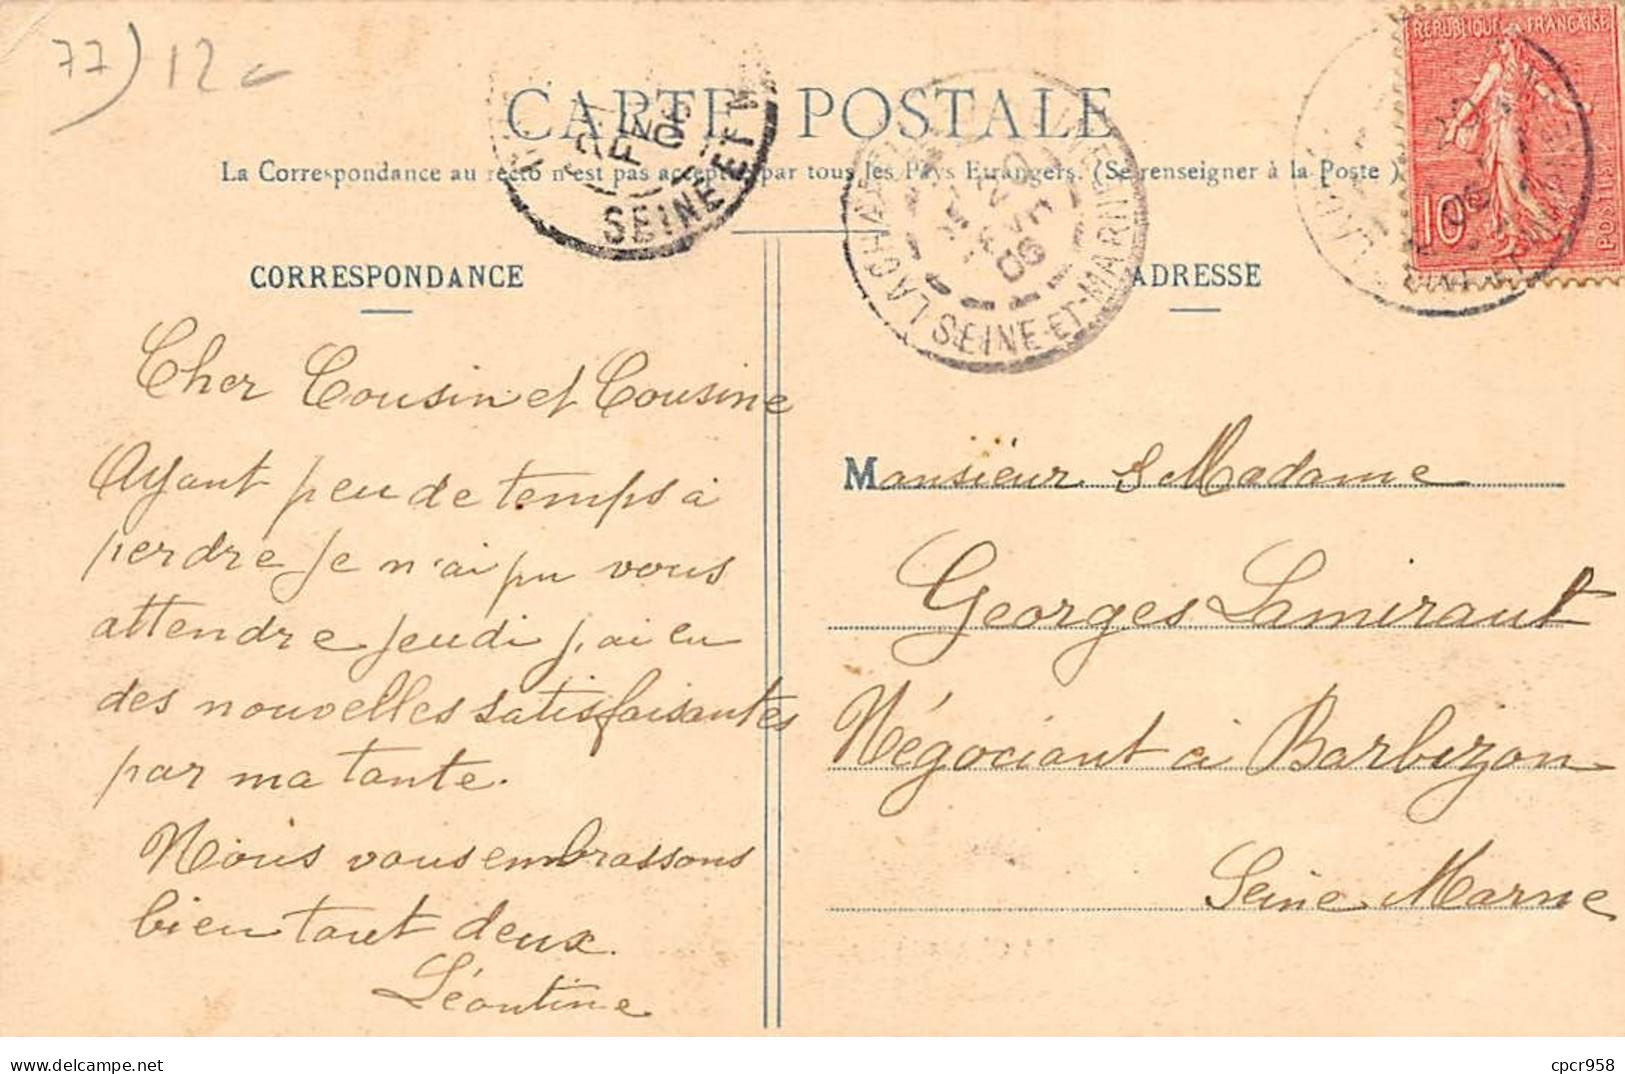 77) 12
CARTE POSTALE
La Correspondance au recto n'est pas acceptée par tous les Pays Etrangers. (Se renseigner à la Poste)
REPUBLIQUE FRANÇAISE
10
POSTES
SEINE-ET-M
SEINE-ET-MARNE
06
CORRESPONDANCE
Cher Cousin et Cousine
Ayant peu de temps à
perdre je n'ai pu vous
attendre jeudi j'ai eu
des nouvelles satisfaisantes
par ma tante.
Nous vous embrassons
bien tout deux.
Léontine
ADRESSE
Monsieur & Madame
Georges Lamiraut
Négociant à Barbizon
Seine Marne
delcampe.net
cpcr958